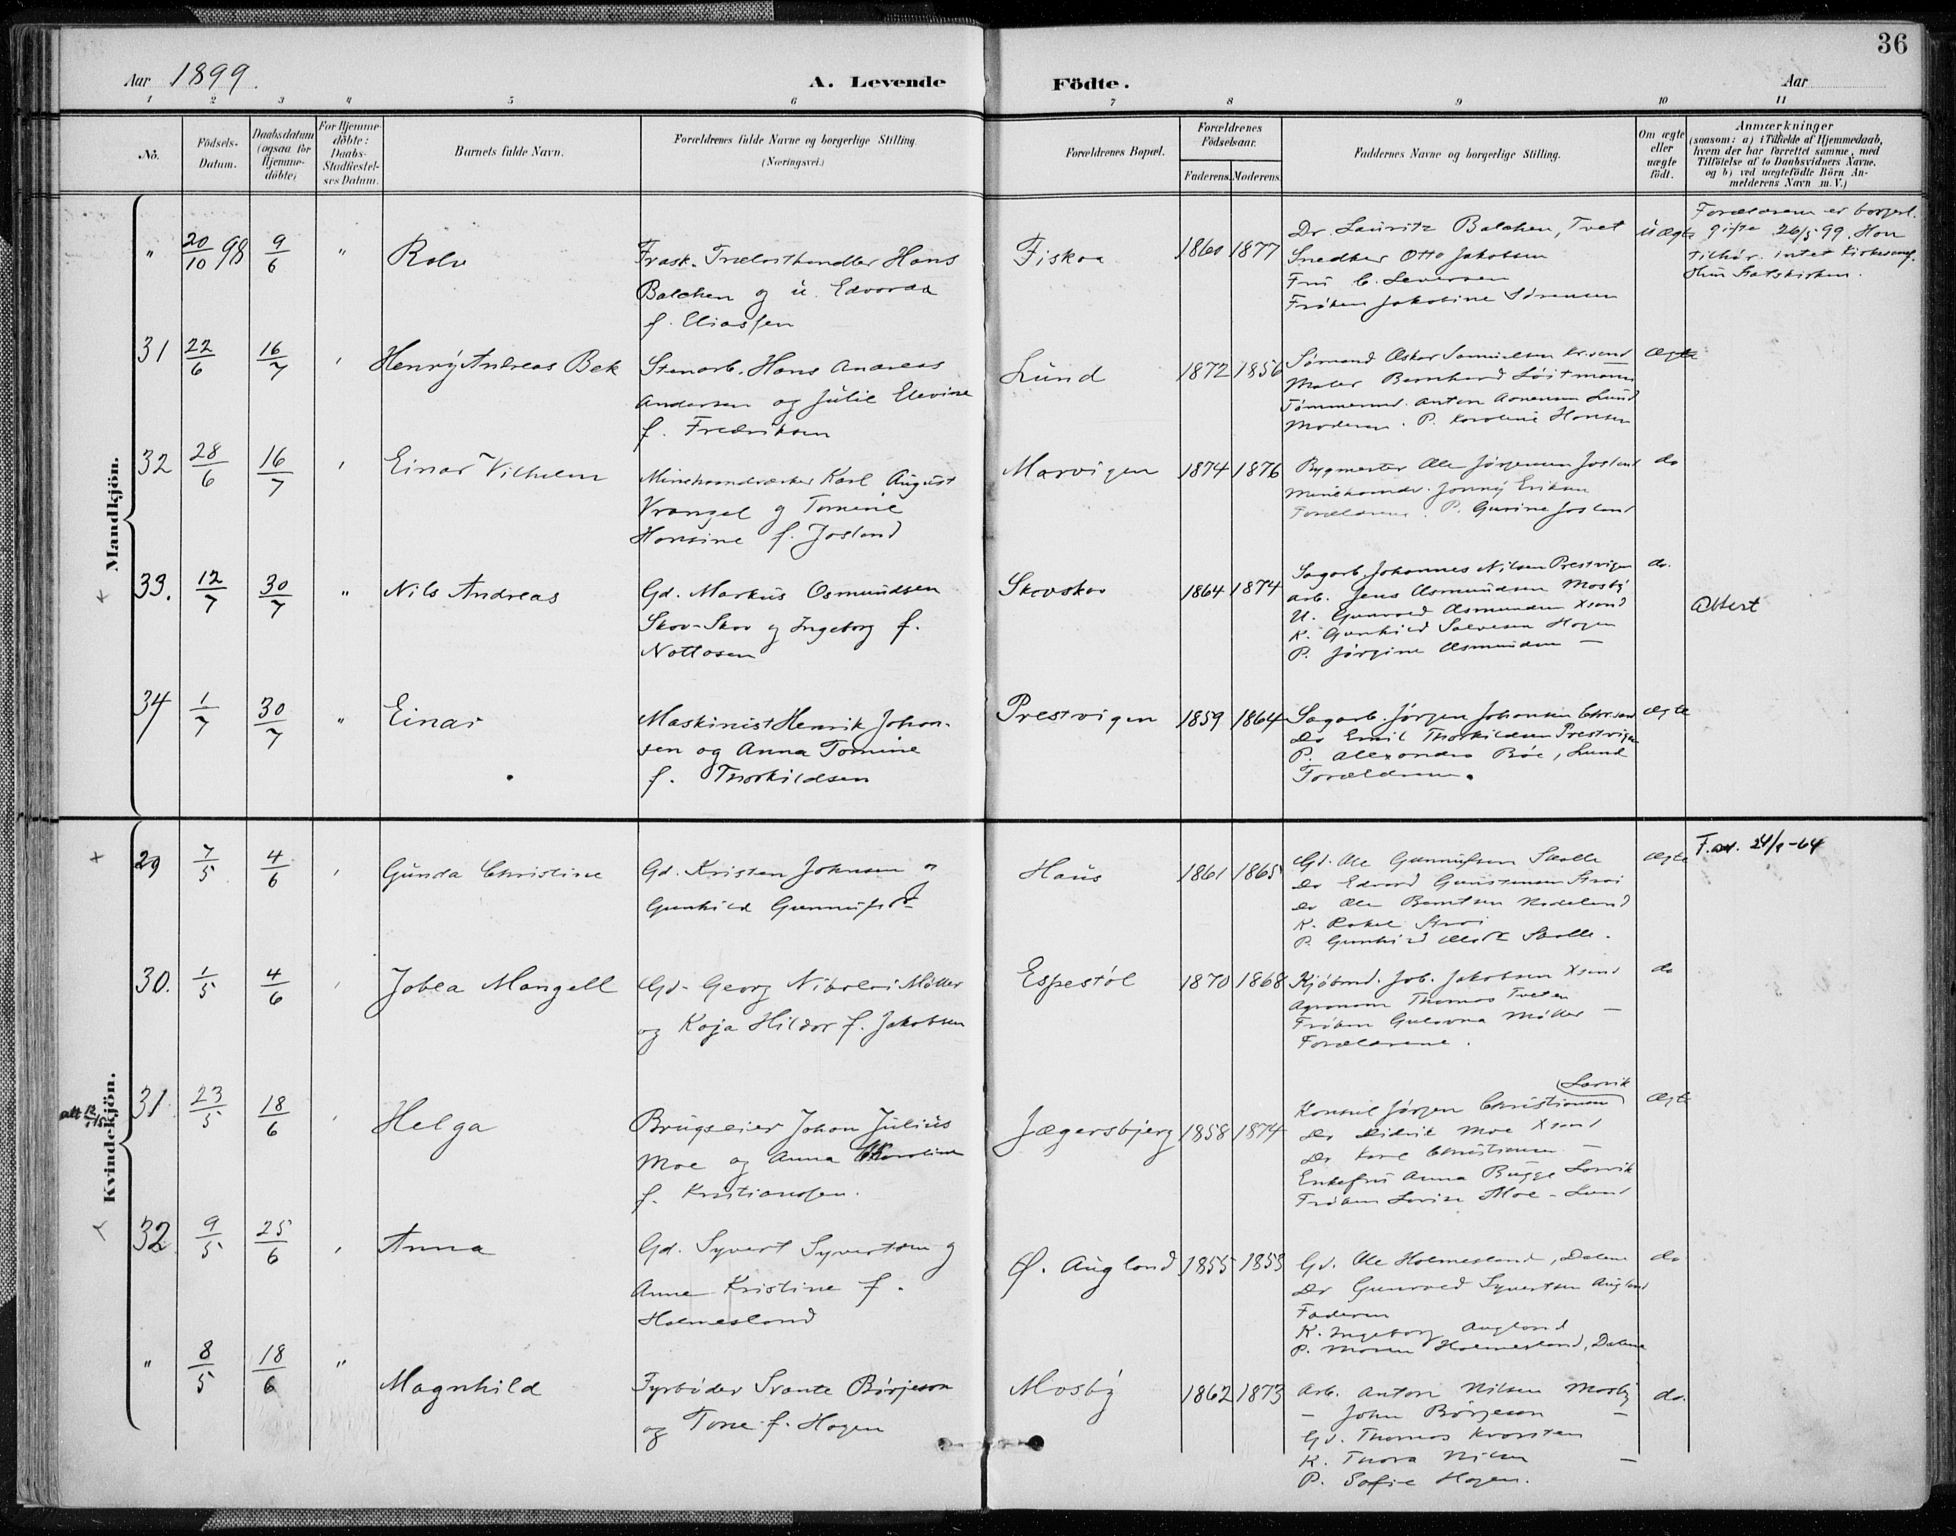 36
Aar 1899.
A. Levende Födte.
Aar
1 2 3 4 5 6 7 8 9 10 11
No.
Födsels-Datum.
Daabsdatum (ogsaa for Hjemme-döbte;
For Hjemme-döbte: Daabs-Stadfæstel-ses Datum.
Barnets fulde Navn.
Forældrenes fulde Navne og borgerlige Stilling.
(Næringsvei.)
Forældrenes Bopæl.
Forældrenes Födselsaar.
Faderens. Moderens.
Faddernes Navne og borgerlige Stilling.
Om ægte eller uægte födt.
Anmærkninger
(saasom: a) i Tilfælde af Hjemmedaab,
hvem der har forrettet samme, med
Tilföielse af to Daabsvidners Navne,
og b) ved uægtefödte Börn An-
melderens Navn m.V.)
Mandkjön.
" 20/10 98 9/6 " Rolv
Frask. Trælasthandler Hans
Balchen og u. Edvarda
f. Eliassen
Fiskaa 1860 1877
Dr. Lauritz Balchen, Tvet
Snedker Otto Jakobsen
Fru C. Seversen
Frøken Jakobine Sørensen
uægte
Forældrene er borgerl.
gifte 26/5 99. Han
tilhør. intet Kirkesamf.
Hun Statskirken.
31 22/6 16/7 Henry Andreas Bek
Stenarb. Hans Andreas
Andersen og Julie Elevine
f. Fredriksen
Lund 1872 1856
Sømand Oskar Samuelsen Kr.sand
Maler Bernhard Løitmann
Tømmermd. Anton Aanensen Lund
Moderen. P. Karoline Hansen
ægte
32 28/6 16/7 Einar Vilhelm
Minehaandværker Karl August
Vrangel og Tomine
Hansine f. Josland
Marvigen 1874 1876
Bygmester Ole Jørgensen Josland
Minehaandv. Jonny Eriksen
Forældrene. P. Gurine Josland
do
33. 12/7 30/7 " Nils Andreas
Gd. Markus Osmundsen
Skov-Skov og Ingeborg f.
Nottosen
Skovskov 1864 1874
Sagarb. Johannes Nilsen Prestvigen
Arb. Jens Asmundsen Mosby
U. Gunvald Asmundsen Xsand
K. Gunhild Salvesen Hagen
P. Jørgine Asmundsen —
do.
Attest
34 1/7 30/7 " Einar
Maskinist Henrik Johan-
sen og Anna Tomine
f. Thorkildsen
Prestvigen 1859 1864
Sagarb. Jørgen Johansen Chr.sand
Do Emil Thorkildsen Prestvigen
P. Alexandra Bøe, Lund
Forældrene.
ægte
Kvindekjön.
29 7/5 4/6 Gunda Christine
Gd. Kristen Johnsen og
Gunhild Gunnufsdt
Haus 1861 1865
Gd. Ole Gunnufsen Stolle
Do Edvard Gunstensen Strai
Do Ole Berntsen Nodeland
K. Rakel Strai
P. Gunhild Olsdt Stolle.
ægte
F.att. 21/9-64
30. 1/5 4/6 Jobea Mangell
Gd. Georg Nikolai Møller
og Kaja Hildor f. Jakobsen
Espestøl 1870 1868
Kjøbmd. Job. Jakobsen Xsand
Agronom Thomas Tveten
Frøken Gulovna Møller —
Forældrene.
do
att 12/1 15
31 23/5 18/6 Helga
Brugseier Johan Julius
Moe og Anna Karoline
f. Kristiansen.
Jægersbjerg 1858 1874
Larvik
Konsul Jørgen Christiansen
Do Didrik Moe Xsand
Do Karl Christiansen —
Enkefru Anna Bugge Larvik
Frøken Lovise Moe - Lund
ægte
32 9/5 25/6 Anna
Gd. Syvert Syvertsen og
Anne Kristine f.
Holmesland
Ø. Augland 1855 1853
Gd. Ole Holmesland, Dalane
Do Gunvald Syvertsen Augland
Faderen
K. Ingeborg Augland
P. Maren Holmesland, Dalane
do
" 8/5 18/6 " Magnhild
Fyrbøder Svante Børjeson
og Tone f. Hagen
Mosby 1862 1873
Arb. Anton Nilsen Mosby
— John Børjeson —
Gd. Thomas Kvarsten
K. Thora Nilsen —
P. Sofie Hagen.
do.